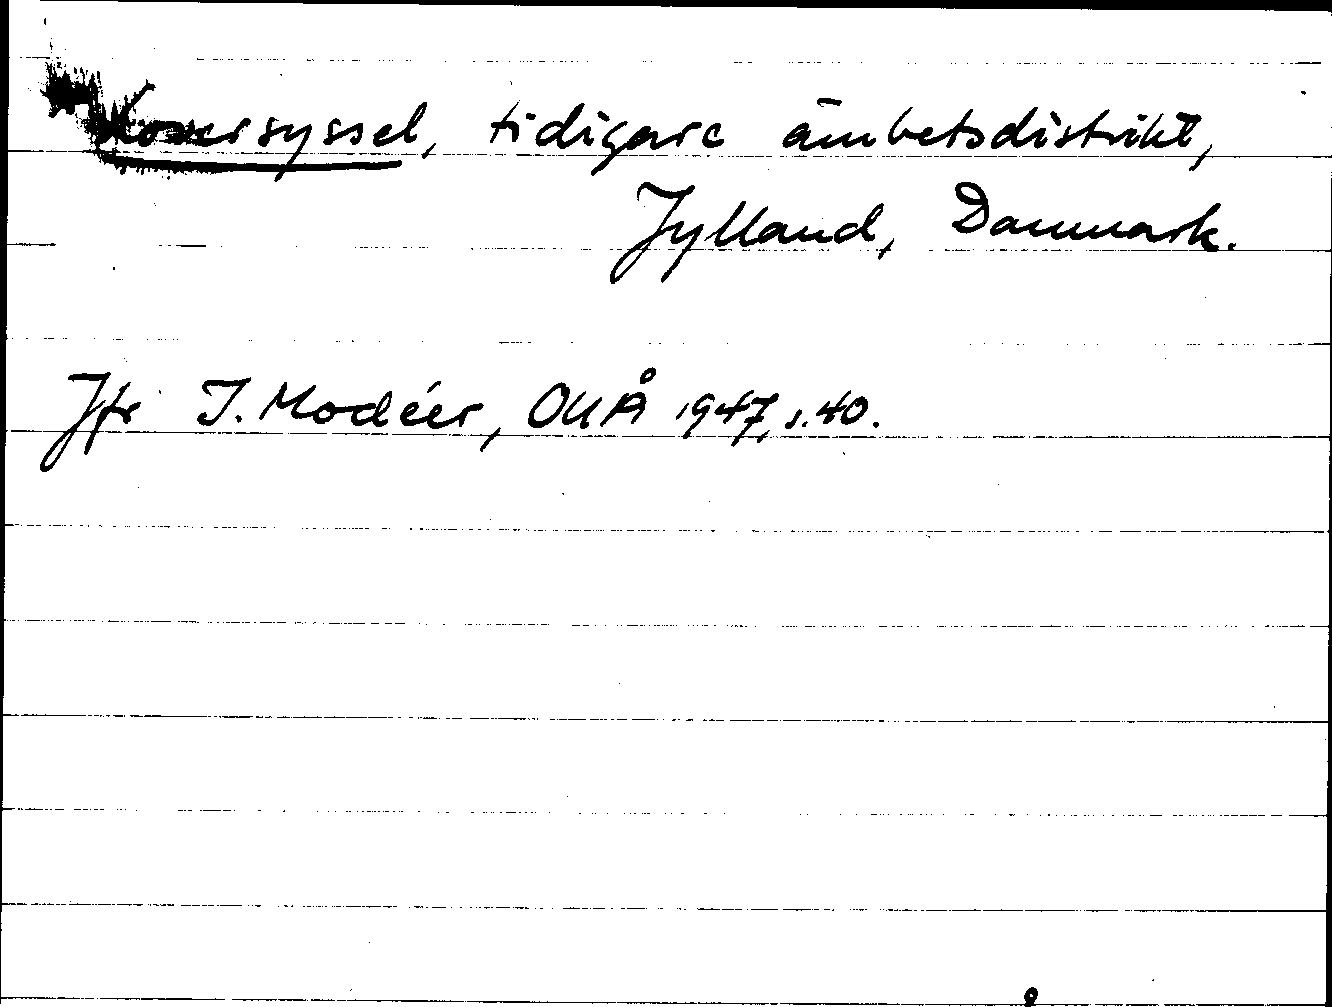 Loversyssel, tidigare ämbetsdistrikt,
Jylland, Danmark.
Jfr I. Modéer, OUÅ 1947, s. 40.